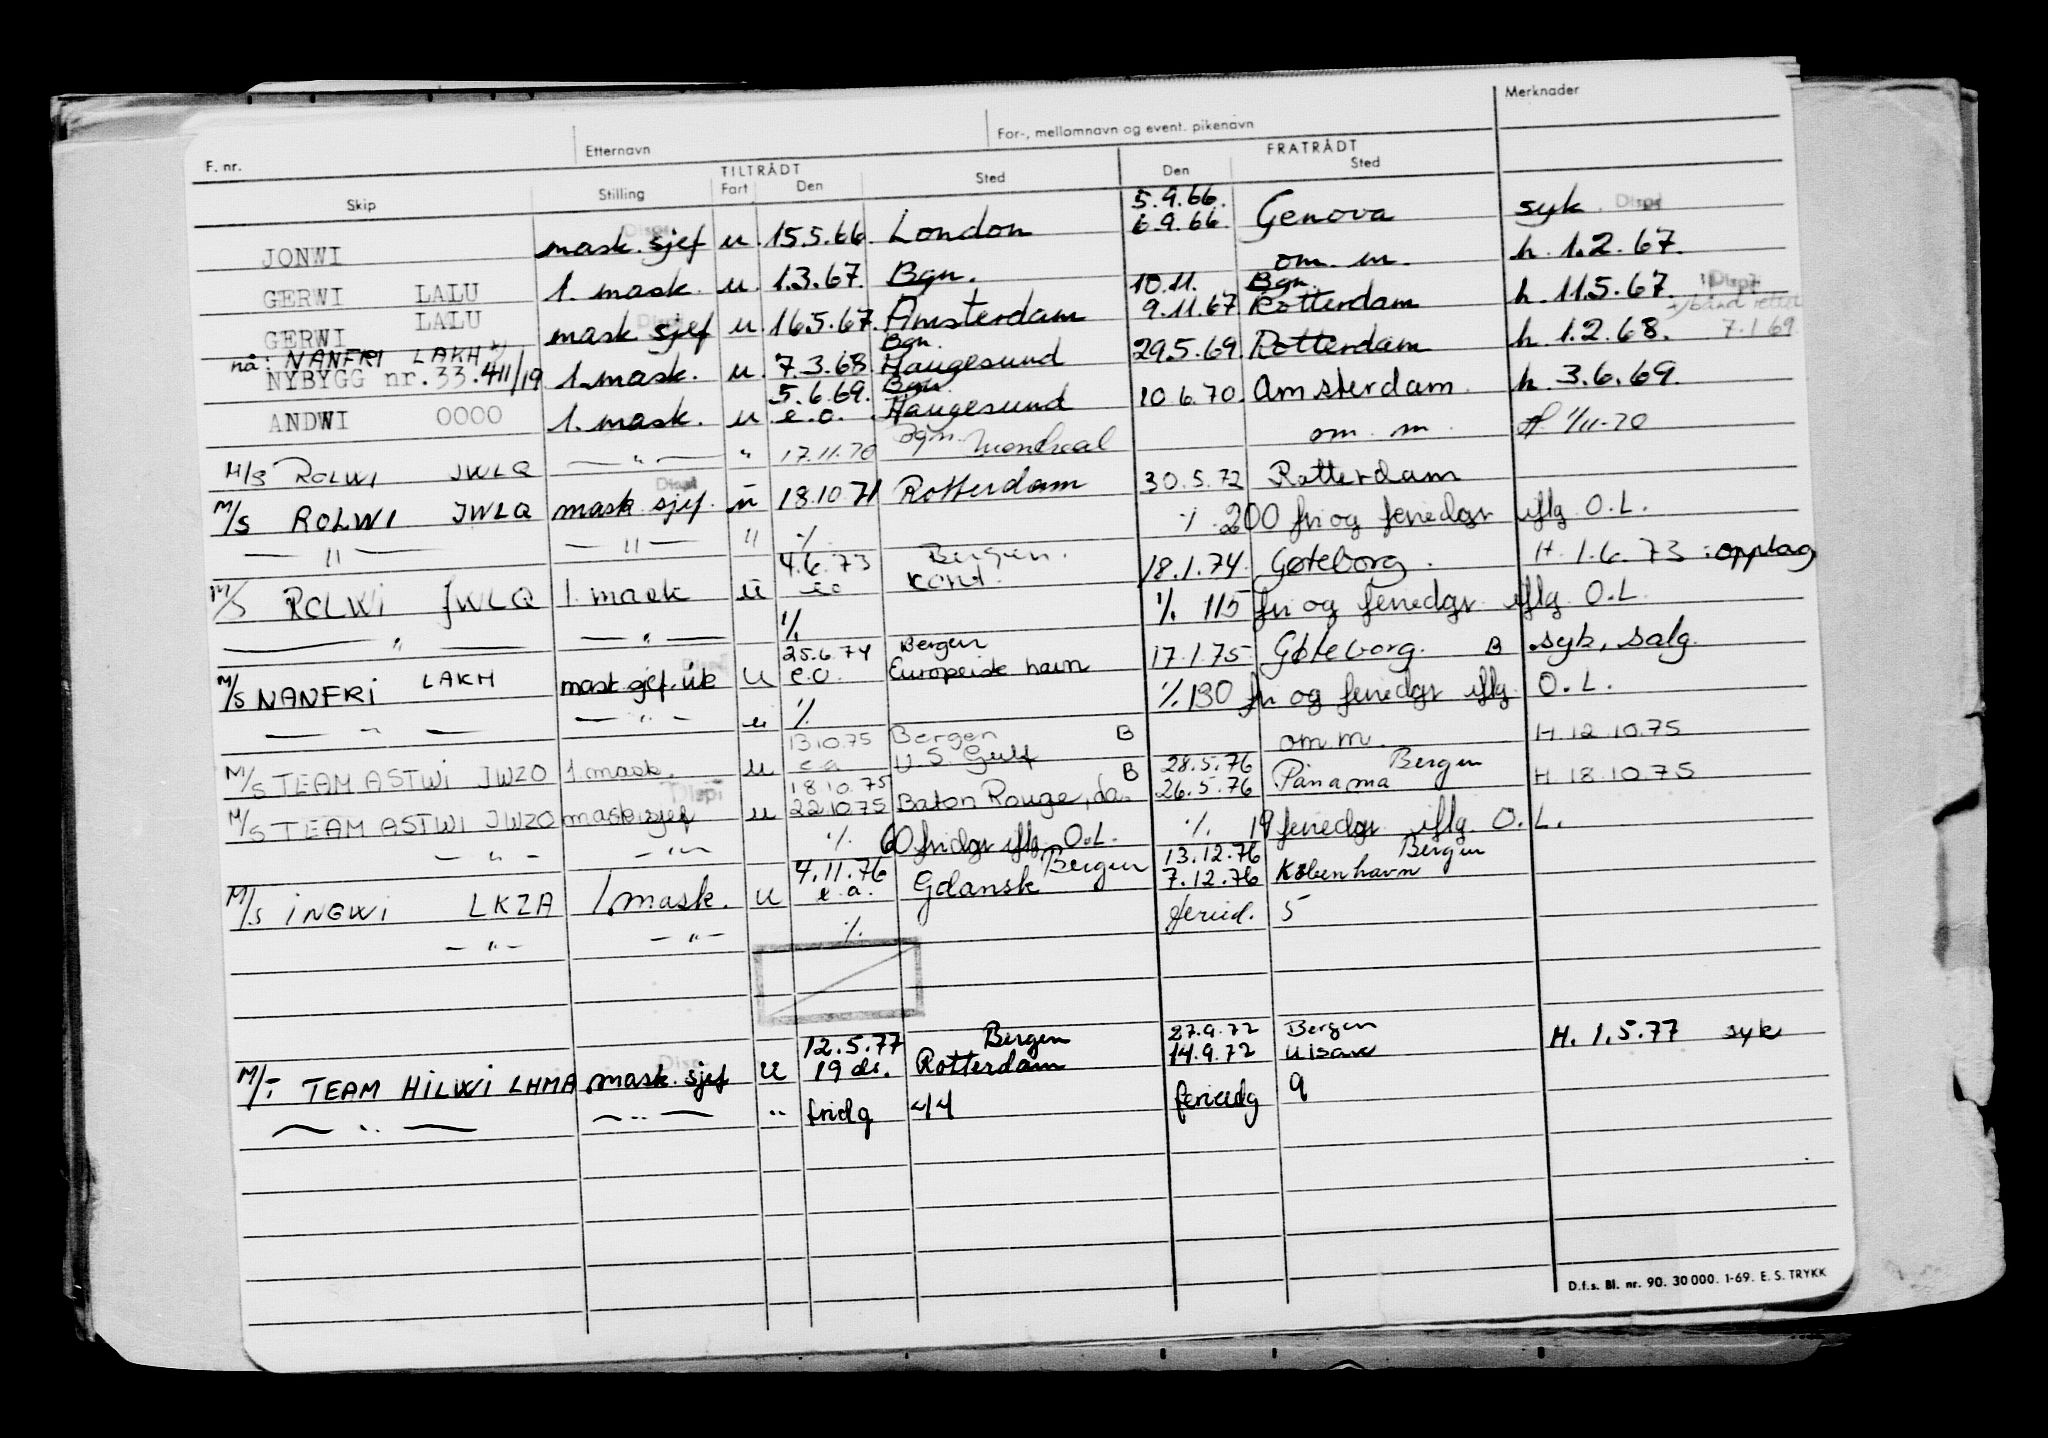 Merknader
F. nr. Etternavn For-, mellomnavn og event. pikenavn
TILTRÅDT FRATRÅDT
Skip Stilling Fart Den Sted Den Sted
5.9.66.
JONWI mask. sjef u. 15.5.66. London 6.9.66 Genova syk Disp
om. m. h. 1.2.67.
GERWI LALU 1. mask. u. 1.3.67. Bgn. 10.11. Bgn.
GERWI LALU mask sjef u. 16.5.67. Amsterdam 9.11.67 Rotterdam h. 11.5.67 Disp
Bgn. 7.1.69
nå: NANFRI LAKH
NYBYGG nr. 33.411/19 1. mask. u. 7.3.68. Haugesund 29.5.69. Rotterdam h. 1.2.68.
5.6.69. Bgn.
ANDWI OOOO 1. mask. u e.o. Haugesund 10.6.70. Amsterdam. h. 3.6.69.
M/S ROLWI JWLQ — " — " 17.11.70 Bgn. Montreal om. m. 1/11-70
M/S ROLWI JWLQ mask. sjef. u 18.10.71 Rotterdam 30.5.72 Rotterdam
— " — — " — " ./. ./. 200 fri og feriedgr iflg. O.L.
4.6.73 Bergen.
M/S ROLWI JWLQ 1. mask u eo kont. 18.1.74. Gøteborg. H. 1.6.73 : opplag
— " — — " — ./. ./. 115 fri og feriedgr. iflg. O.L.
25.6.74 Bergen
M/S NANFRI LAKH mask sjef. vik u e.o. Europeisk havn 17.1.75 Gøteborg. B syk, salg.
— " — — " — u ./. ./. 130 fri og feriedgr iflg. O.L.
13.10.75 Bergen B
M/S TEAM ASTWI JWZO 1. mask. u e.a U.S. Gulf om m. H. 12.10.75
18.10.75 B 28.5.76 Bergen
M/S TEAM ASTWI JWZO mask sjef u 22.10.75 Baton Rouge, da. 26.5.76 Panama H. 18.10.75
— " — — " — ./. 60 fridgr iflg. O.L. ./. 19 feriedgr. iflg. O.L.
4.11.76 Bergen 13.12.76 Bergen
M/S INGWI LKZA 1. mask. u e.a. Gdansk 7.12.76 København
— " — — " — ./. feried. 5
12.5.77 Bergen 27.9.77 Bergen
M/T TEAM HILWI LHMA mask. sjef u 19 ds. Rotterdam 14.9.77 H. 1.5.77 syk
— " — — " — " fridg 44 feriedg 9
D.f.s. Bl. nr. 90. 30 000. 1-69. E. S. TRYKK